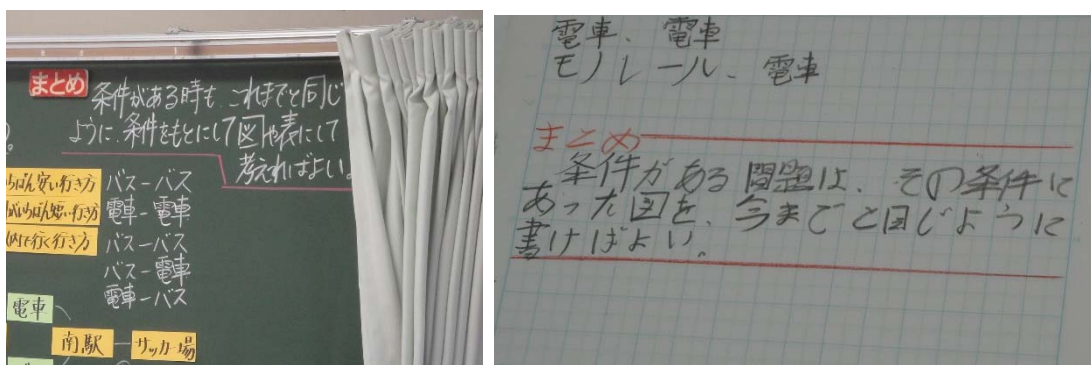 まとめ
条件がある時も、これまでと同じ
ように、条件をもとにして図や表にして
考えればよい。
ちばん安い行き方
バス－バス
がいちばん短い行き方
電車－電車
内で行く行き方
バス－バス
バス－電車
電車－バス
電車
南駅
サッカー場
電車、電車
モノレール、電車
まとめ
条件がある問題は、その条件に
あった図を、今までと同じように
書けばよい。